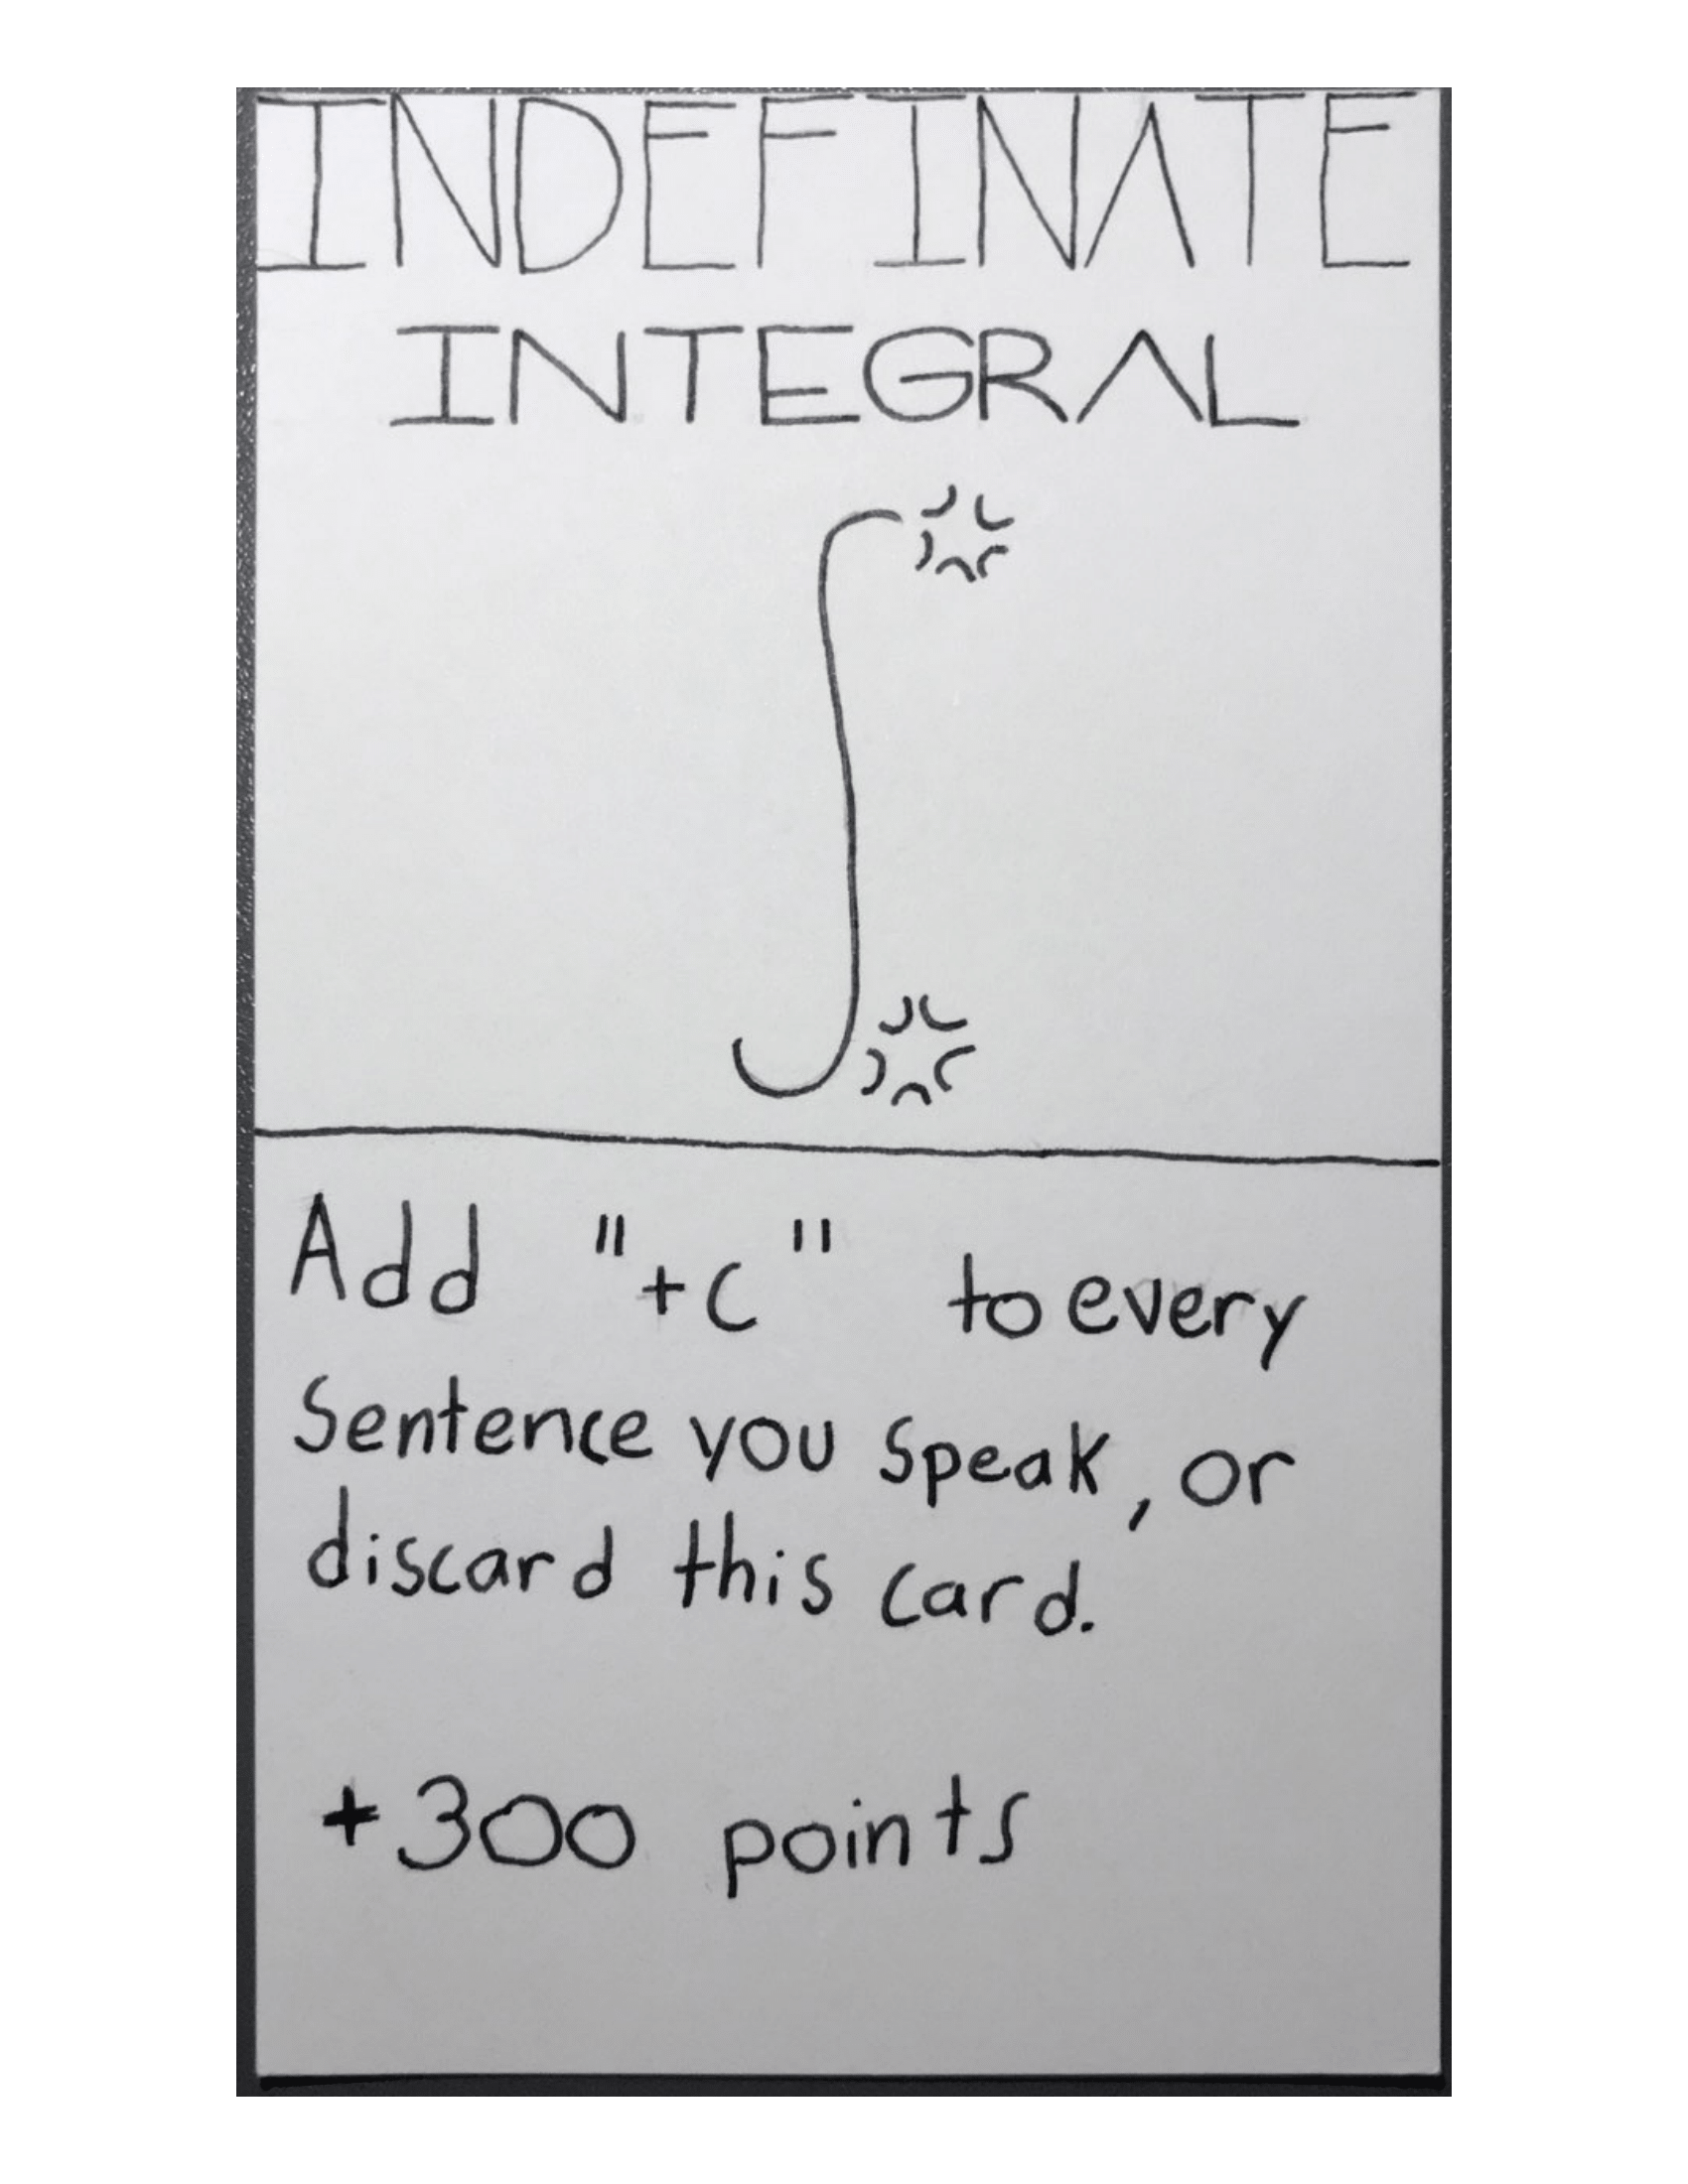 INDEFINATE
INTEGRAL
∫
Add "+c" to every
Sentence you speak, or
discard this card.
+300 points